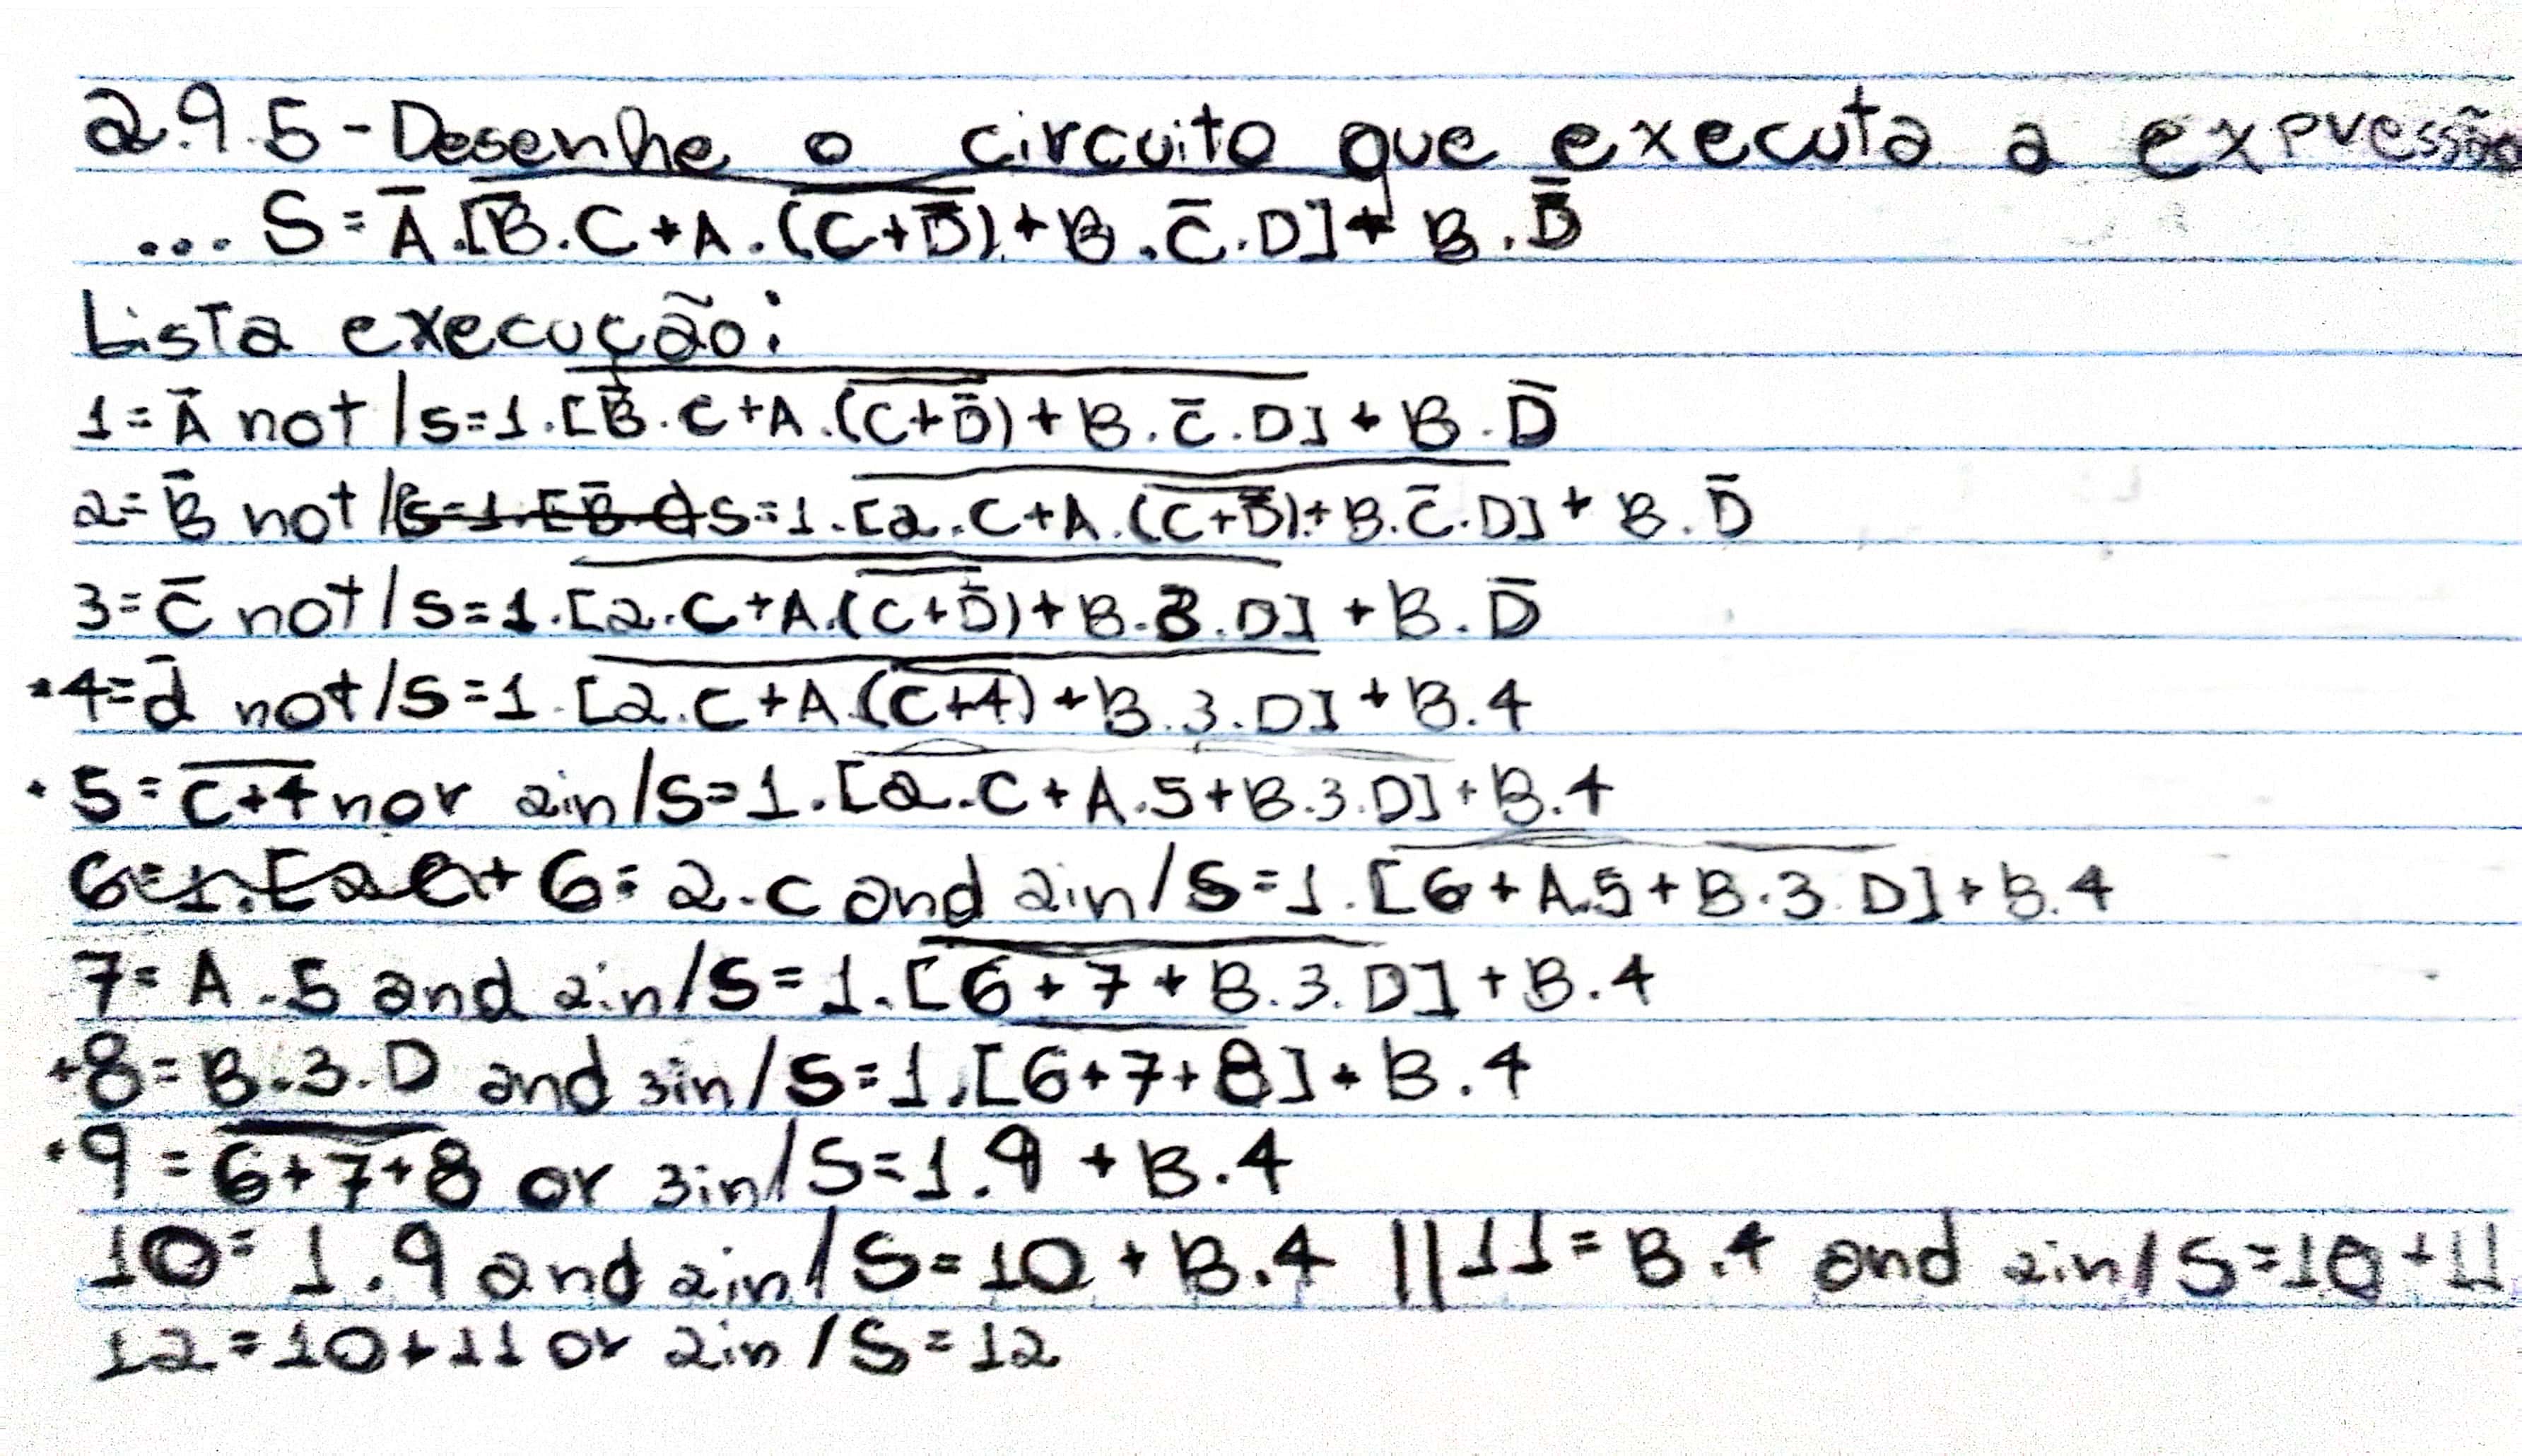 2.9.5-Desenhe o circuito que executa a expressão
... S = A̅.[B̅.C+A.(C̅+̅D̅̅)+B.C̅.D]+B.D̅
Lista execução:
1=A̅ not/s=1.[B̅.C+A.(C̅+̅D̅̅)+B.C̅.D]+B.D̅
2=B̅ not/s=1.[2.C+A.(C̅+̅D̅̅)+B.C̅.D]+B.D̅
3=C̅ not/s=1.[2.C+A.(C̅+̅D̅̅)+B.3.D]+B.D̅
•4=d̅ not/S=1.[2.C+A.(C̅+̅4̅)+B.3.D]+B.4
•5=C̅+̅4̅ nor 2in/S=1.[2.C+A.5+B.3.D]+B.4
6=1.[2C+ 6=2.C and 2in/S=1.[6+A.5+B.3.D]+B.4
7=A.5 and 2in/S=1.[6+7+B.3.D]+B.4
+8=B.3.D and 3in/S=1.[6+7+8]+B.4
•9=6̅+̅7̅+̅8̅ or 3in/S=1.9+B.4
10=1.9 and 2in/S=10+B.4 ||11=B.4 and 2in/S=10+11
12=10+11 or 2in/S=12